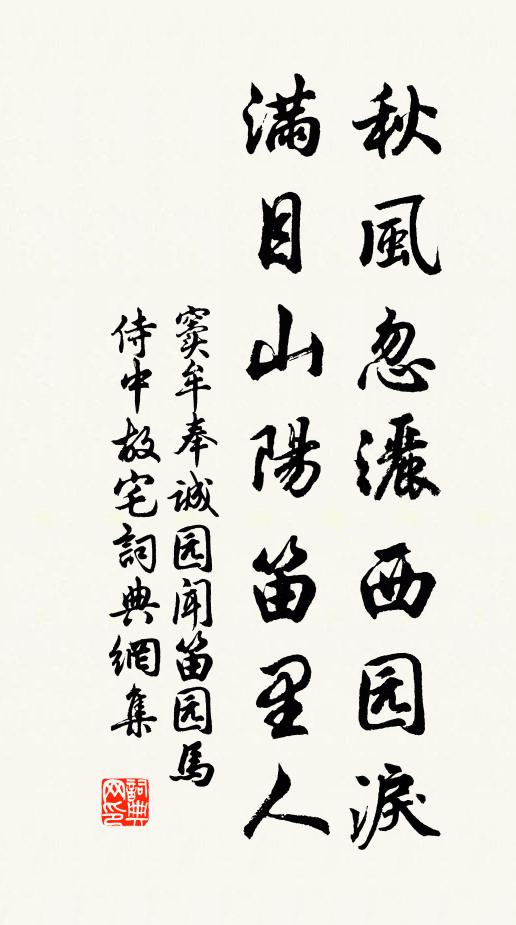 秋風忽灑西园淚
滿目山陽笛里人
窦牟奉诚园闻笛园馬
侍中故宅詞典網集
詞典网印